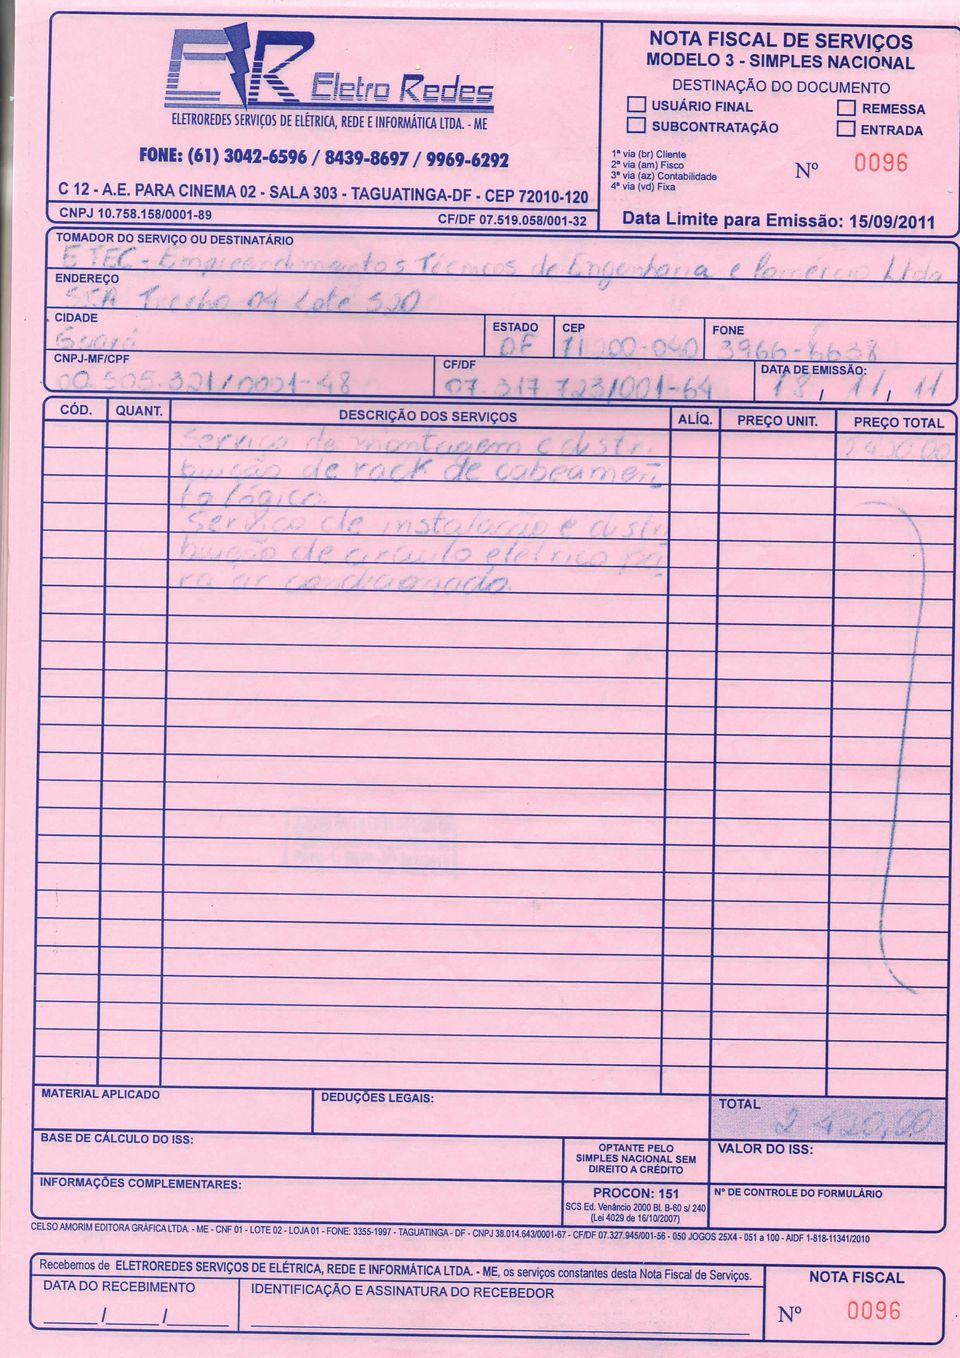 ER Eletro Redes
ELETROREDES SERVIÇOS DE ELÉTRICA, REDE E INFORMÁTICA LTDA. - ME
FONE: (61) 3042-6596 / 8439-8697 / 9969-6292
C 12 - A.E. PARA CINEMA 02 - SALA 303 - TAGUATINGA-DF - CEP 72010-120
CNPJ 10.758.158/0001-89 CF/DF 07.519.058/001-32
NOTA FISCAL DE SERVIÇOS
MODELO 3 - SIMPLES NACIONAL
DESTINAÇÃO DO DOCUMENTO
USUÁRIO FINAL REMESSA
SUBCONTRATAÇÃO ENTRADA
1ª via (br) Cliente
2ª via (am) Fisco
3ª via (az) Contabilidade
4ª via (vd) Fixa
Nº 0096
Data Limite para Emissão: 15/09/2011
TOMADOR DO SERVIÇO OU DESTINATÁRIO
ETEC - Empreendimentos Técnicos de Engenharia e Comércio Ltda
ENDEREÇO
SIA Trecho 04 Lote
CIDADE
Guará
ESTADO
DF
CEP
71200-040
FONE
3966-6638
CNPJ-MF/CPF
00.505.321/0001-48
CF/DF
07.317.723/001-64
DATA DE EMISSÃO:
18 / 11 / 11
CÓD. QUANT. DESCRIÇÃO DOS SERVIÇOS ALÍQ. PREÇO UNIT. PREÇO TOTAL
Serviço de montagem e distri- 2.420,00
buição de rack de cabeamen-
to lógico.
Serviço de instalação e distri-
buição de circuito elétrico pa-
ra ar condicionado.
MATERIAL APLICADO
DEDUÇÕES LEGAIS:
TOTAL
2.420,00
BASE DE CÁLCULO DO ISS:
OPTANTE PELO
SIMPLES NACIONAL SEM
DIREITO A CRÉDITO
VALOR DO ISS:
INFORMAÇÕES COMPLEMENTARES:
PROCON: 151
SCS Ed. Venâncio 2000 Bl. B-60 s/ 240
(Lei 4029 de 16/10/2007)
Nº DE CONTROLE DO FORMULÁRIO
CELSO AMORIM EDITORA GRÁFICA LTDA. - ME - CNF 01 - LOTE 02 - LOJA 01 - FONE: 3355-1997 - TAGUATINGA - DF - CNPJ 38.014.643/0001-67 - CF/DF 07.327.945/001-56 - 050 JOGOS 25X4 - 051 a 100 - AIDF 1-818-11341/2010
Recebemos de ELETROREDES SERVIÇOS DE ELÉTRICA, REDE E INFORMÁTICA LTDA. - ME, os serviços constantes desta Nota Fiscal de Serviços.
DATA DO RECEBIMENTO
____/____/____
IDENTIFICAÇÃO E ASSINATURA DO RECEBEDOR
NOTA FISCAL
Nº 0096